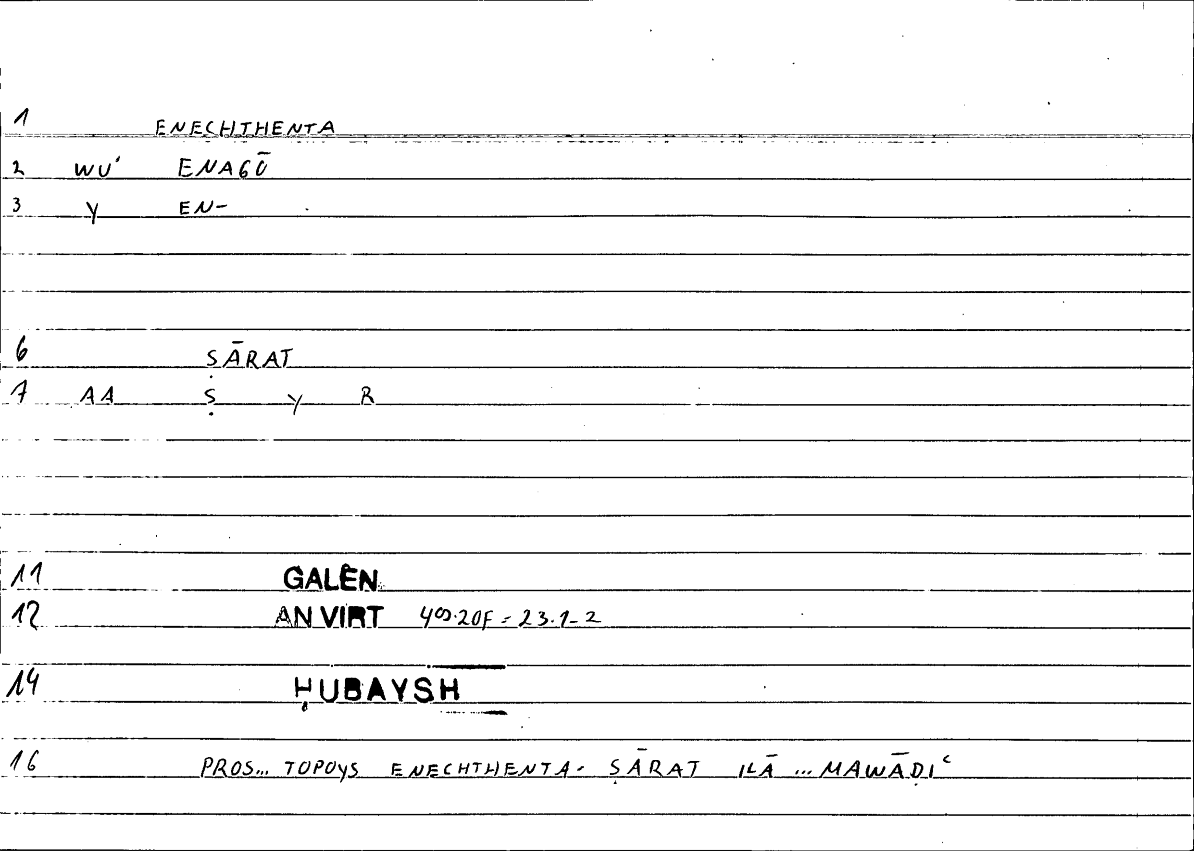 1 ENECHTHENTA
2 WU' ENAGŌ
3 Y EN-
6 ṢĀRAT
7 AA Ṣ Y R
11 GALĒN
12 AN VIRT 40.20F = 23.1-2
14 ḤUBAYSH
16 PROS... TOPOYS ENECHTHENTA· ṢĀRAT ILĀ ... MAWĀḌIʿ